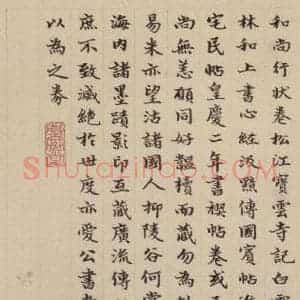 和尚行状卷松江寶雲寺記白雲
林和上書心經汲黯傳國賓帖
宅民帖皇慶二年書禊帖卷或
尚無恙願同好韞櫝而藏勿為
易米亦望沽諸國人抑陵谷何常
海内諸墨蹟影印互藏廣流傳
庶不致滅絶於世度亦愛公書
以為之券
Shufaziliao.com